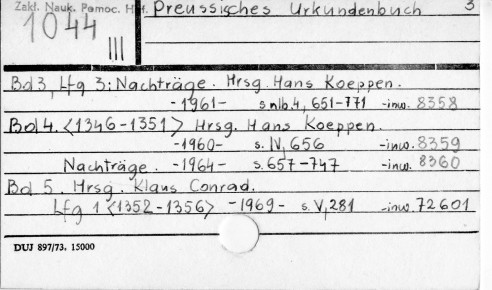 Zakł. Nauk. Pomoc. Hist. Preussisches Urkundenbuch 3
1044
III
Bd 3, Lfg 3: Nachträge. Hrsg. Hans Koeppen.
-1961- s nlb.4, 651-771 -inw. 8358
Bd 4. <1346-1351> Hrsg. Hans Koeppen.
-1960- s. IV, 656 -inw. 8359
Nachträge. -1964- s. 657-747 -inw. 8360
Bd 5. Hrsg. Klaus Conrad.
Lfg 1 <1352-1356> -1969- s. V, 281 -inw. 72601
DUJ 897/73. 15000